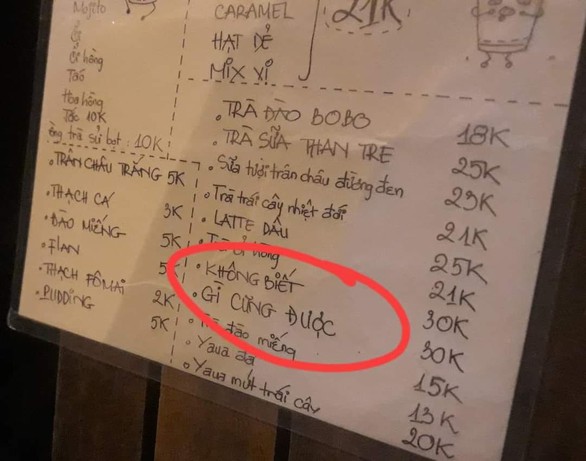 Mojito
ổi
ổi hồng
Táo
Hoa hồng
Tắc 10K
sủi bọt : 10K
CARAMEL
HẠT DẺ
MIX VỊ
21K
• TRÂN CHÂU TRẮNG 5K
• THẠCH CÁ 3K
• ĐÀO MIẾNG 5K
• FLAN 5K
• THẠCH FÔMAI 2K
• PUDDING 5K
• TRÀ ĐÀO BOBO 18K
• TRÀ SỮA THAN TRE 25K
• Sữa tươi trân châu đường đen 23K
• Trà trái cây nhiệt đới 21K
• LATTE DÂU 25K
• Trà ổi hồng 21K
• KHÔNG BIẾT 30K
• GÌ CŨNG ĐƯỢC 30K
• Trà đào miếng 15K
• Yaua đá 13K
• Yaua mứt trái cây 20K